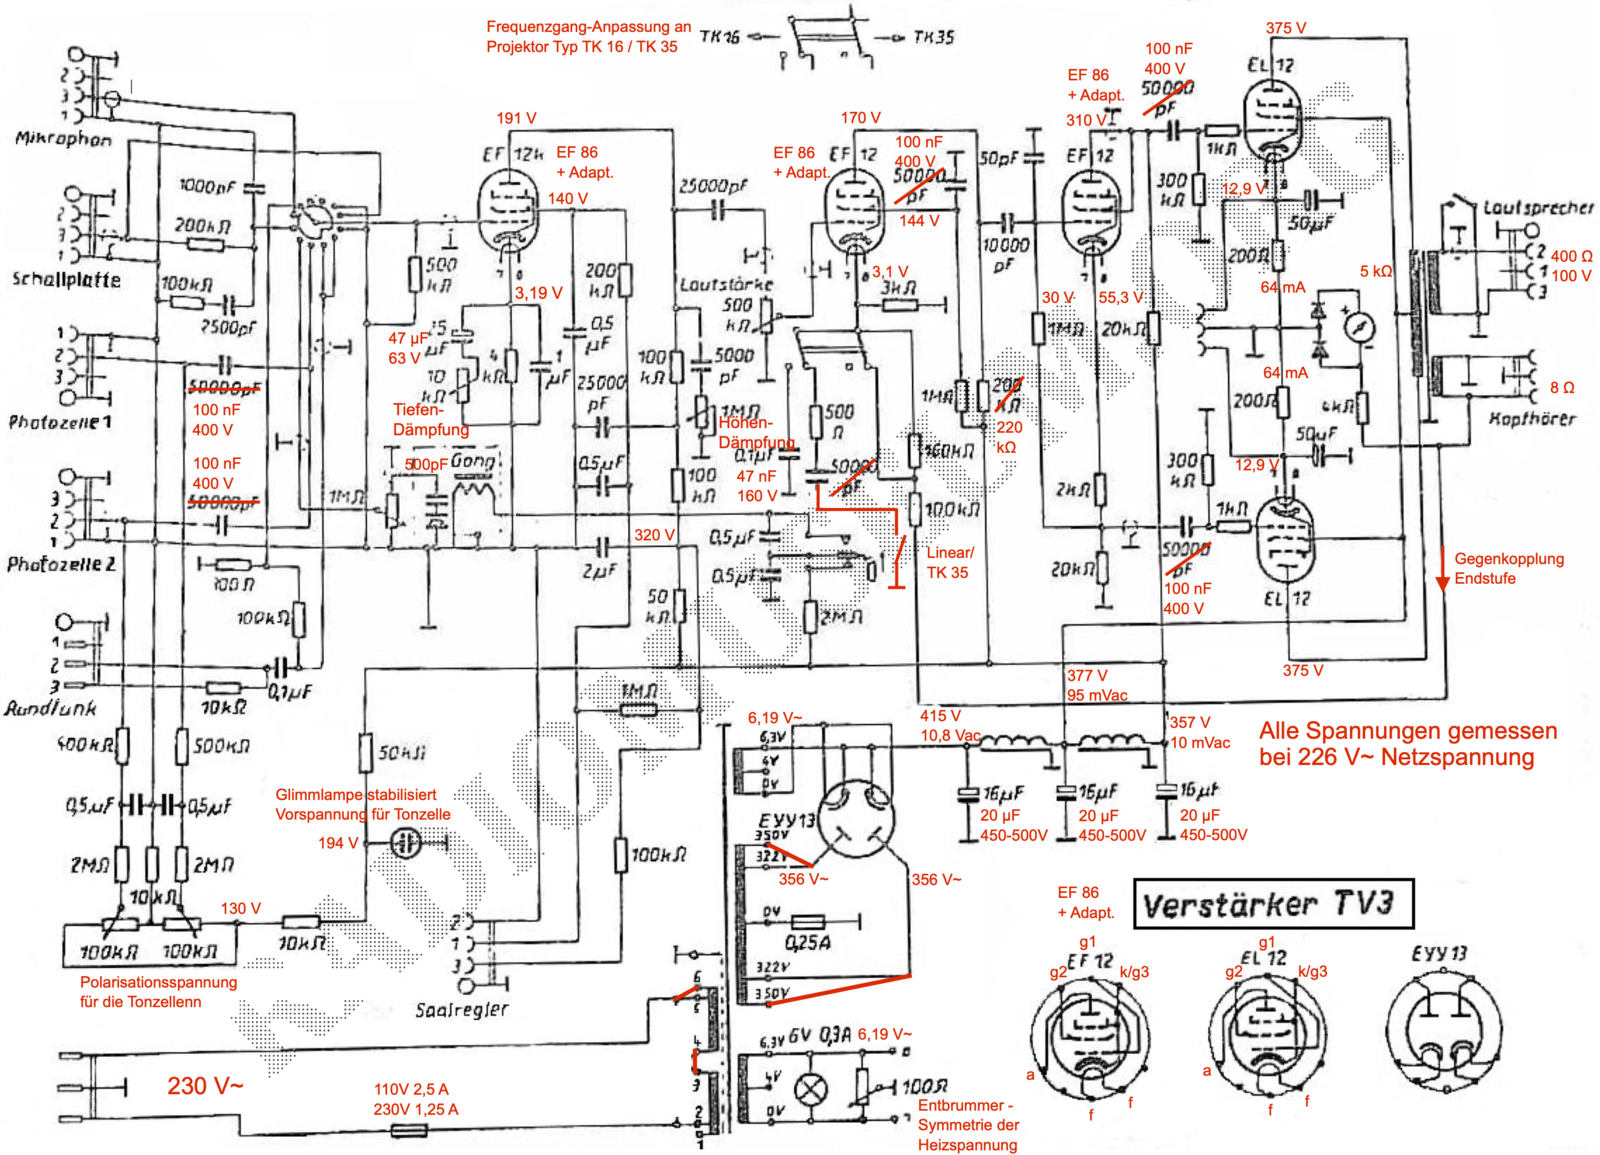 Frequenzgang-Anpassung an
Projektor Typ TK 16 / TK 35
TK16
TK35
375 V
100 nF
400 V
50000
pF
EL 12
EF 86
+ Adapt.
310 V
EF 12
1kΩ
300
kΩ
12,9 V
50µF
200Ω
64 mA
5 kΩ
Lautsprecher
2
1
3
400 Ω
100 V
8 Ω
Kopfhörer
Mikrophon
2
3
1
Schallplatte
2
3
1
1000pF
200kΩ
100kΩ
2500pF
191 V
EF 12k
EF 86
+ Adapt.
140 V
500
kΩ
3,19 V
200
kΩ
47 µF
63 V
µF
10
kΩ
4
kΩ
1
µF
0,5
µF
25000
pF
0,5µF
Tiefen-
Dämpfung
500pF
Gong
1MΩ
25000pF
Lautstärke
500
kΩ
100
kΩ
5000
pF
1MΩ
Höhen-
Dämpfung
100
kΩ
0,1µF
47 nF
160 V
170 V
EF 12
EF 86
+ Adapt.
100 nF
400 V
50000
pF
144 V
3,1 V
3kΩ
500
Ω
50000
pF
160kΩ
100kΩ
1MΩ
200
kΩ
220
kΩ
50pF
10000
pF
30 V
1MΩ
55,3 V
20kΩ
2kΩ
20kΩ
64 mA
200Ω
4kΩ
50µF
12,9 V
300
kΩ
1kΩ
50000
pF
100 nF
400 V
EL 12
375 V
Linear/
TK 35
Gegenkopplung
Endstufe
Photozelle 1
1
2
3
50000pF
100 nF
400 V
Photozelle 2
3
2
1
100 nF
400 V
50000pF
100Ω
100kΩ
Rundfunk
1
2
3
10kΩ
0,1µF
2µF
320 V
50
kΩ
0,5µF
0,5µF
2MΩ
1MΩ
377 V
95 mVac
415 V
10,8 Vac
357 V
10 mVac
Alle Spannungen gemessen
bei 226 V~ Netzspannung
16µF
20 µF
450-500V
16µF
20 µF
450-500V
16µF
20 µF
450-500V
400kΩ
500kΩ
0,5µF
0,5µF
2MΩ
10kΩ
2MΩ
100kΩ
100kΩ
130 V
10kΩ
50kΩ
Glimmlampe stabilisiert
Vorspannung für Tonzelle
194 V
Polarisationsspannung
für die Tonzellenn
100kΩ
2
1
3
Saalregler
6,19 V~
6,3V
4V
0V
EYY13
350V
322V
356 V~
356 V~
0V
0,25A
322V
350V
6
5
4
3
2
1
6,3V
4V
0V
6V 0,3A
6,19 V~
100Ω
Entbrummer -
Symmetrie der
Heizspannung
230 V~
110V 2,5 A
230V 1,25 A
Verstärker TV3
EF 86
+ Adapt.
g1
EF 12
g2
k/g3
a
f
f
g1
EL 12
g2
k/g3
a
f
f
EYY13